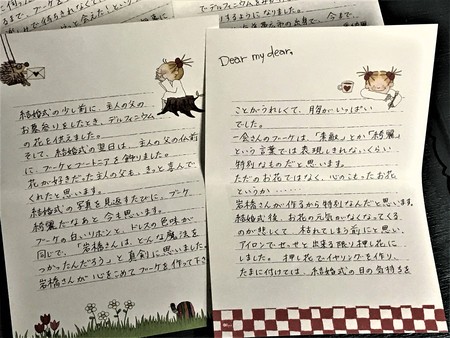 結婚式の少し前に、主人の父の
お墓参りをしたとき、デルフィニウム
の花を供えました。
そして、結婚式の翌日は、主人の父の仏前
に、ブーケとブートニアを飾りました。
花が好きだった主人の父も、きっと喜んで
くれたと思います。
結婚式の写真を見返すたびに、ブーケ
綺麗だなあと今も思います。
ブーケの白いリボンと、ドレスの色味が
同じで、「岩橋さんは、どんな魔法を
つかったんだろう」と真剣に思いました。
岩橋さんが心をこめてブーケを作って下さ
Dear my dear,
ことがうれしくて、胸がいっぱい
でした。
一会さんのブーケは、「素敵」とか「綺麗」
という言葉では表現しきれないくらい
特別なものだと思います。
ただのお花ではなく、心のこもったお花
というか……
岩橋さんが作るから特別なんだと思います。
結婚式後、お花の元気がなくなってくる
のが悲しくて 枯れてしまう前にと思い、
アイロンでせっせと出来る限り押し花に
しました。押し花でイヤリングを作り、
たまに付けては、結婚式の日の気持ちを